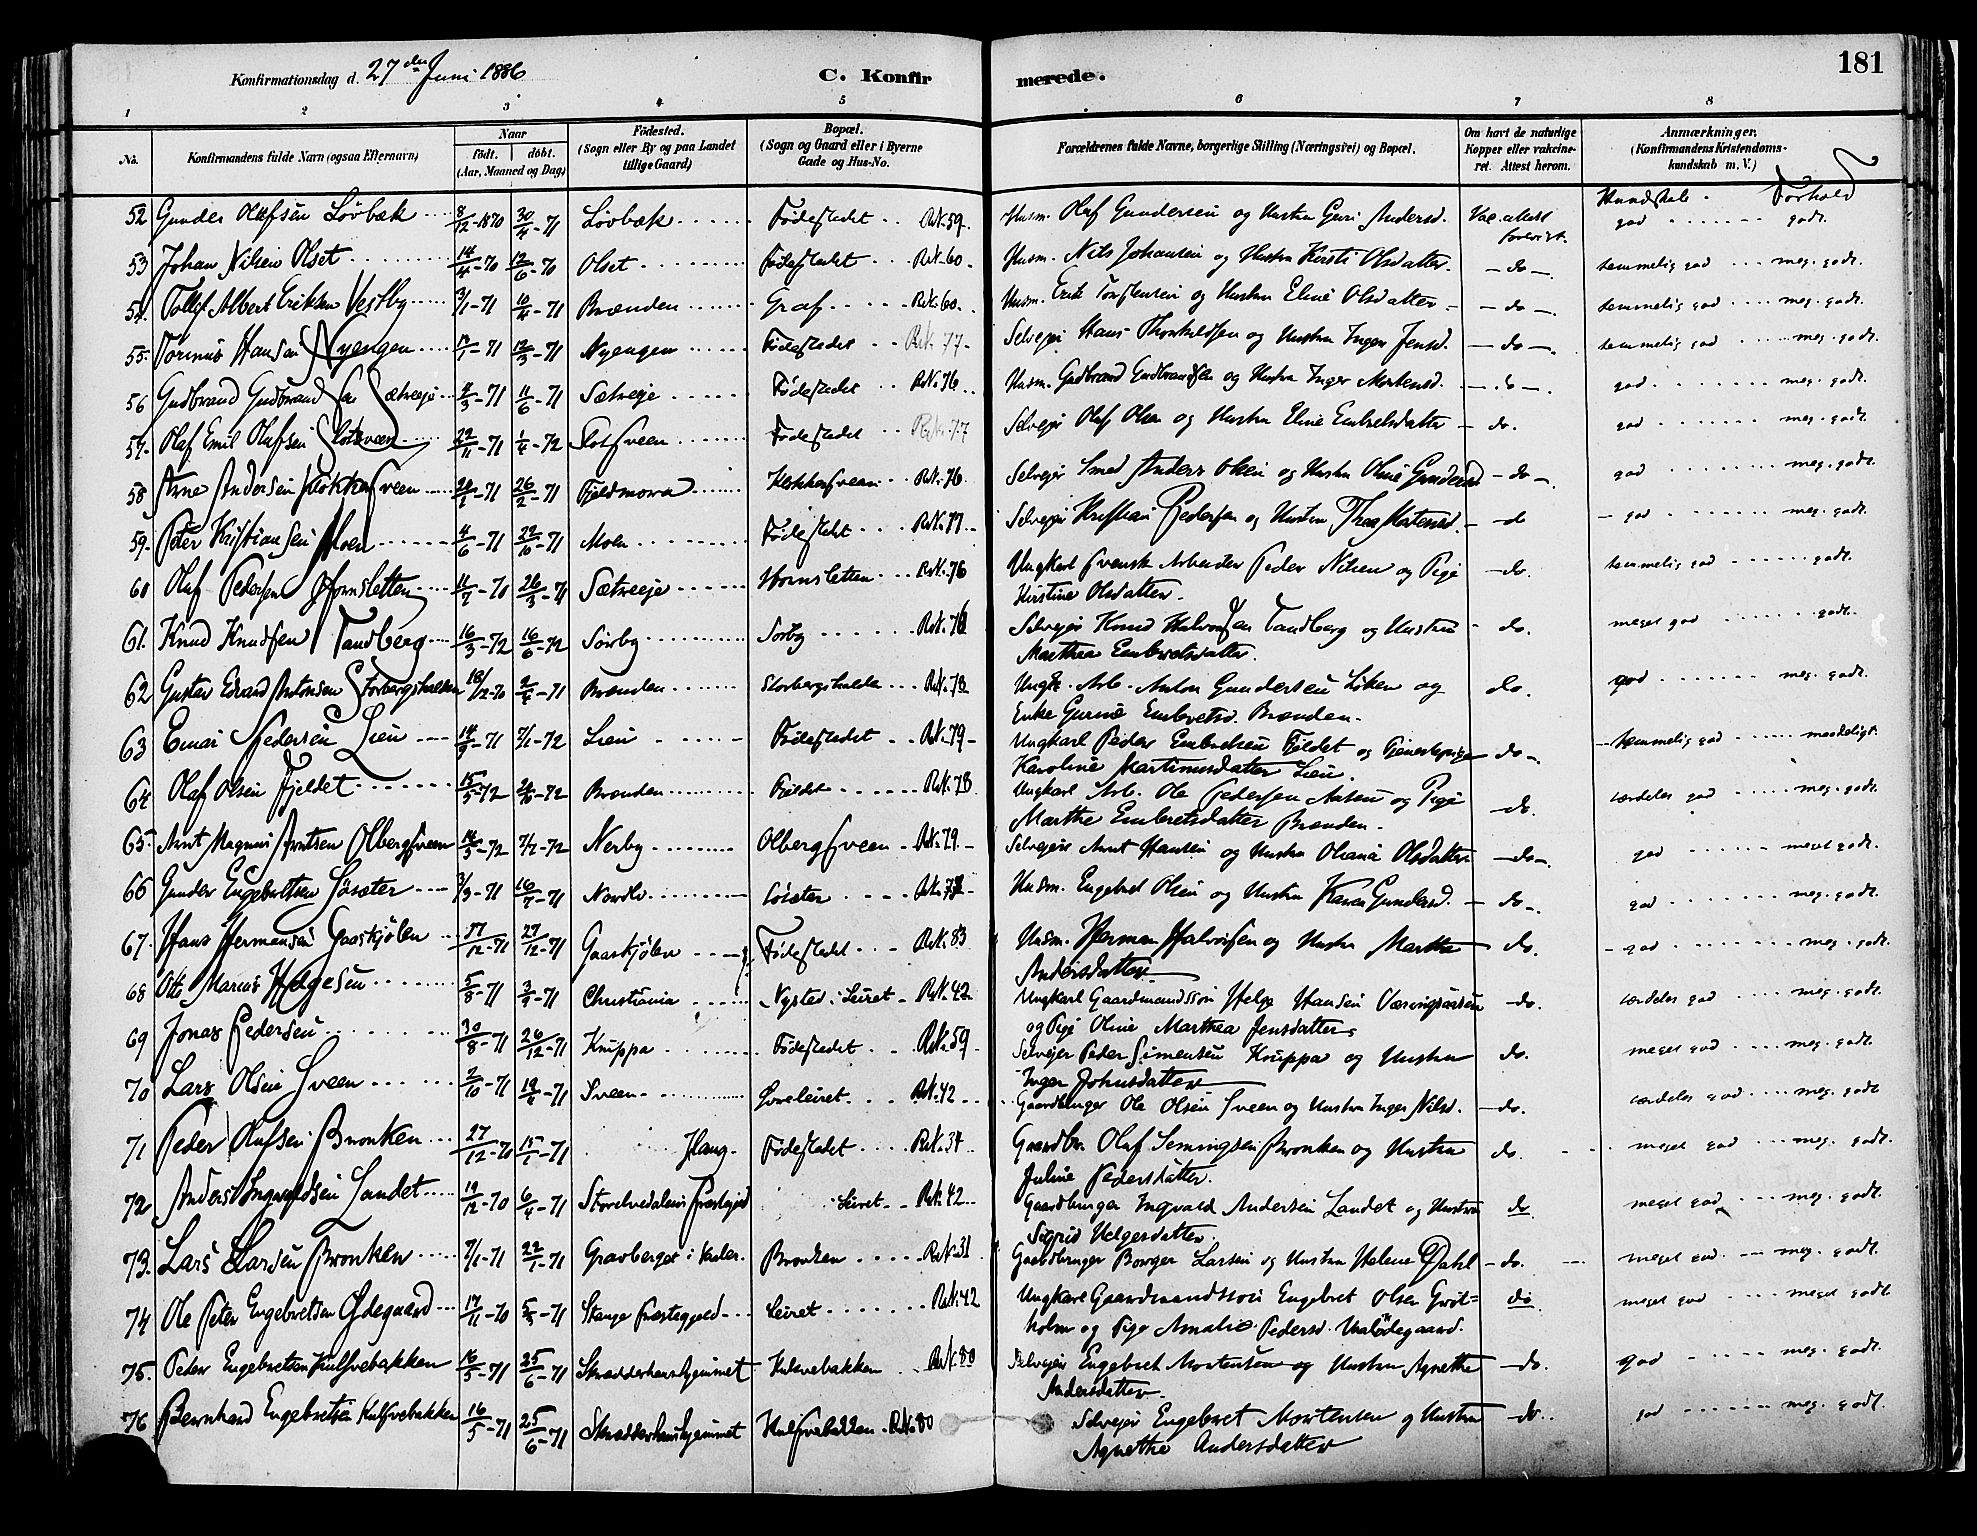 Konfirmationsdag d. 27de Juni 1886 C. Konfirmerede. 181
1 2 3 4 5 6 7 8
No. Konfirmandens fulde Navn (ogsaa Efternavn) Naar født. døbt. (Aar, Maaned og Dag) Fødested. (Sogn eller By og paa Landet tillige Gaard) Bopæl. (Sogn og Gaard eller i Byerne Gade og Hus-No. Forældrenes fulde Navne, borgerlige Stilling (Næringsvei) og Bopæl. Om havt de naturlige Kopper eller vakcineret. Attest herom. Anmærkninger. (Konfirmandens Kristendomskundskab m. V.)
Kundskab. Forhold
52 Gunder Olafsen Lövbæk 8/12-1870 30/4-71 Lövbæk Födestedet R.N.59. Husm. Olaf Gundersen og Hustru Guri Andersd. Vac. attest forevist. god godt.
53 Johan Nilsen Olset 14/4-70 12/6-70 Olset Födestedet R.N.60. Husm. Nils Johansen og Hustru Kirsti Olsdatter. do temmelig god meg. godt.
54. Tollef Albert Eriksen Vestby 3/1-71 10/4-71 Brænden Graf R.N.60. Husm. Erik Torstensen og Hustru Eline Olsdatter do temmelig god meg. godt.
55. Torinus Hansen Nyengen 17/1-71 12/3-71 Nyengen Födestedet R.N.77 Selvejer Hans Thorkildsen og Hustru Inger Jensd. do temmelig god meg. godt.
56 Gudbrand Gudbrandsen Sætreeje 4/3-71 11/6-71 Sætreeje Födestedet R.N.76 Husm. Gudbrand Gudbrandsen og Hustru Inger Mortensd. do god meg. godt.
57. Olaf Emil Olafsen Slotsveen 22/11-71 1/4-72 Slotsveen Födestedet R.N.77 Selvejer Olaf Olsen og Hustru Eline Embretsdatter do. god meg. godt.
58 Arne Andersen Klökkersveen 20/1-71 26/2-71 Fjeldmora Klokkersveen R.N.76 Selvejer Smed Anders Olsen og Hustru Oline Gundersd do god meg. godt.
59. Peter Kristiansen Moen 4/6-71 22/10-71 Moen Födestedet R.N.77. Selvejer Kristian Pedersen og Hustru Thea Mortensd. do god meg. godt.
60 Olaf Pedersen Hornsletten 11/7-70 26/3-71 Sætreeje Hornsletten R.N.76 Ungkarl svensk Arbeider Peder Nilsen og Pige do. temmelig god godt.
Kirstine Olsdatter.
61. Knud Knudsen Tandberg 16/3-72 16/6-72 Sörby Sörby R.N.78 Selvejer Knud Halvorsen Tandberg og Hustru do. meget god godt.
Marthea Embretsdatter.
62 Gustav Edvard Antonsen Storbergshulden 18/12-70 2/4-71 Brænden Storbergshulda R.N.78 Ungk. Arb. Anton Gundersen Löken og do. god meg. godt.
Enke Gurine Embretsd. Brænden.
63 Einar Pedersen Lien 14/9-71 7/1-72 Lien Födestedet R.N.79 Ungkarl Peder Embretsen Fjeldet og Tjenestepige do temmelig god maadeligt.
Karoline Martinusdatter Lien.
64 Olaf Olsen Fjeldet 15/5-72 20/10-72 Brænden Fjeldet R.N.78 Ungkarl Arb. Ole Pedersen Aasen og Pige do. særdeles god meg. godt.
Marthe Embretsdatter Brænden.
65. Arnt Magnus Arntsen Olbergsveen 14/3-72 7/7-72 Nerby Olbergsveen R.N.79. Selvejer Arnt Hansen og Hustru Oliana Olsdatter do god meget godt.
66 Gunder Engebretsen Lösæter 3/3-71 16/7-71 Nordli Lösæter R.N.77 Husm. Engebret Olsen og Hustru Karen Gundersd. do god meg. godt.
67. Hans Hermansen Gaaskjölen 17/12-71 27/12-71 Gaaskjölen Födestedet R.N.83 Husm. Herman Halvorsen og Hustru Marthe do. god meg. godt.
Andersdatter
68 Otto Marius Helgesen 5/8-71 3/9-71 Christiania Nysted i Leiret R.N.42 Ungkarl Gaardmandssön Helge Hansen Væringsaasen do. særdeles god meg. godt.
og Pige Oline Marthea Jensdatter
69 Jonas Pedersen 30/8-71 26/12-71 Kruppa Födestedet R.N.59 Selvejer Peder Simensen Kruppa og Hustru do. meget god meg. godt.
Inger Johnsdatter
70 Lars Olsen Sveen 2/10-71 19/4-71 Sveen Øvreleiret. R.N.42 Gaardbruger Ole Olsen Sveen og Hustru Inger Nilsd. do. særdeles god meg. godt
71 Peder Olafsen Bronken 27/12-70 15/1-71 Haug. Födestedet R.N.34 Gaardbr. Olaf Semingsen Bronken og Hustru do. meget god meg. godt.
Juline Pedersdatter.
72 Anders Ingvaldsen Landet 19/12-70 6/4-71 Storelvedalens Præstegjeld Leiret R.N.42 Gaardbruger Ingvald Andersen Landet og Hustru do meget god meg. godt.
Sigrid Helgesdatter.
73. Lars Larsen Bronken 7/1-71 22/1-71 Gravberget i Vaaler. Bronken R.N.31 Gaardbruger Borger Larsen og Hustru Helene Dahl do. meget god meg. godt.
74 Ole Peter Engebretsen Ødegaard 17/11-70 5/5-71 Stange Præstegjeld Leiret R.N.42 Ungkarl Gaardmandssön Engebret Olsen Gröt-
holm og Pige Amalie Pedersd. Ødegaard. do meget god meget godt
75. Peder Engebretsen Kulsvebakken 16/5-71 25/6-71 Skrædderhanshjemmet Kulsvebakken R.N.80 Selvejer Engebret Mortensen og Hustru Agnethe do. god meg. godt.
Andersdatter
76 Bernhard Engebretsen Kulsvebakken 16/5-71 25/6-71 Skrædderhanshjemmet Kulsvebakken R.N.80 Selvejer Engebret Mortensen og Hustru do. god meg. godt.
Agnethe Andersdatter